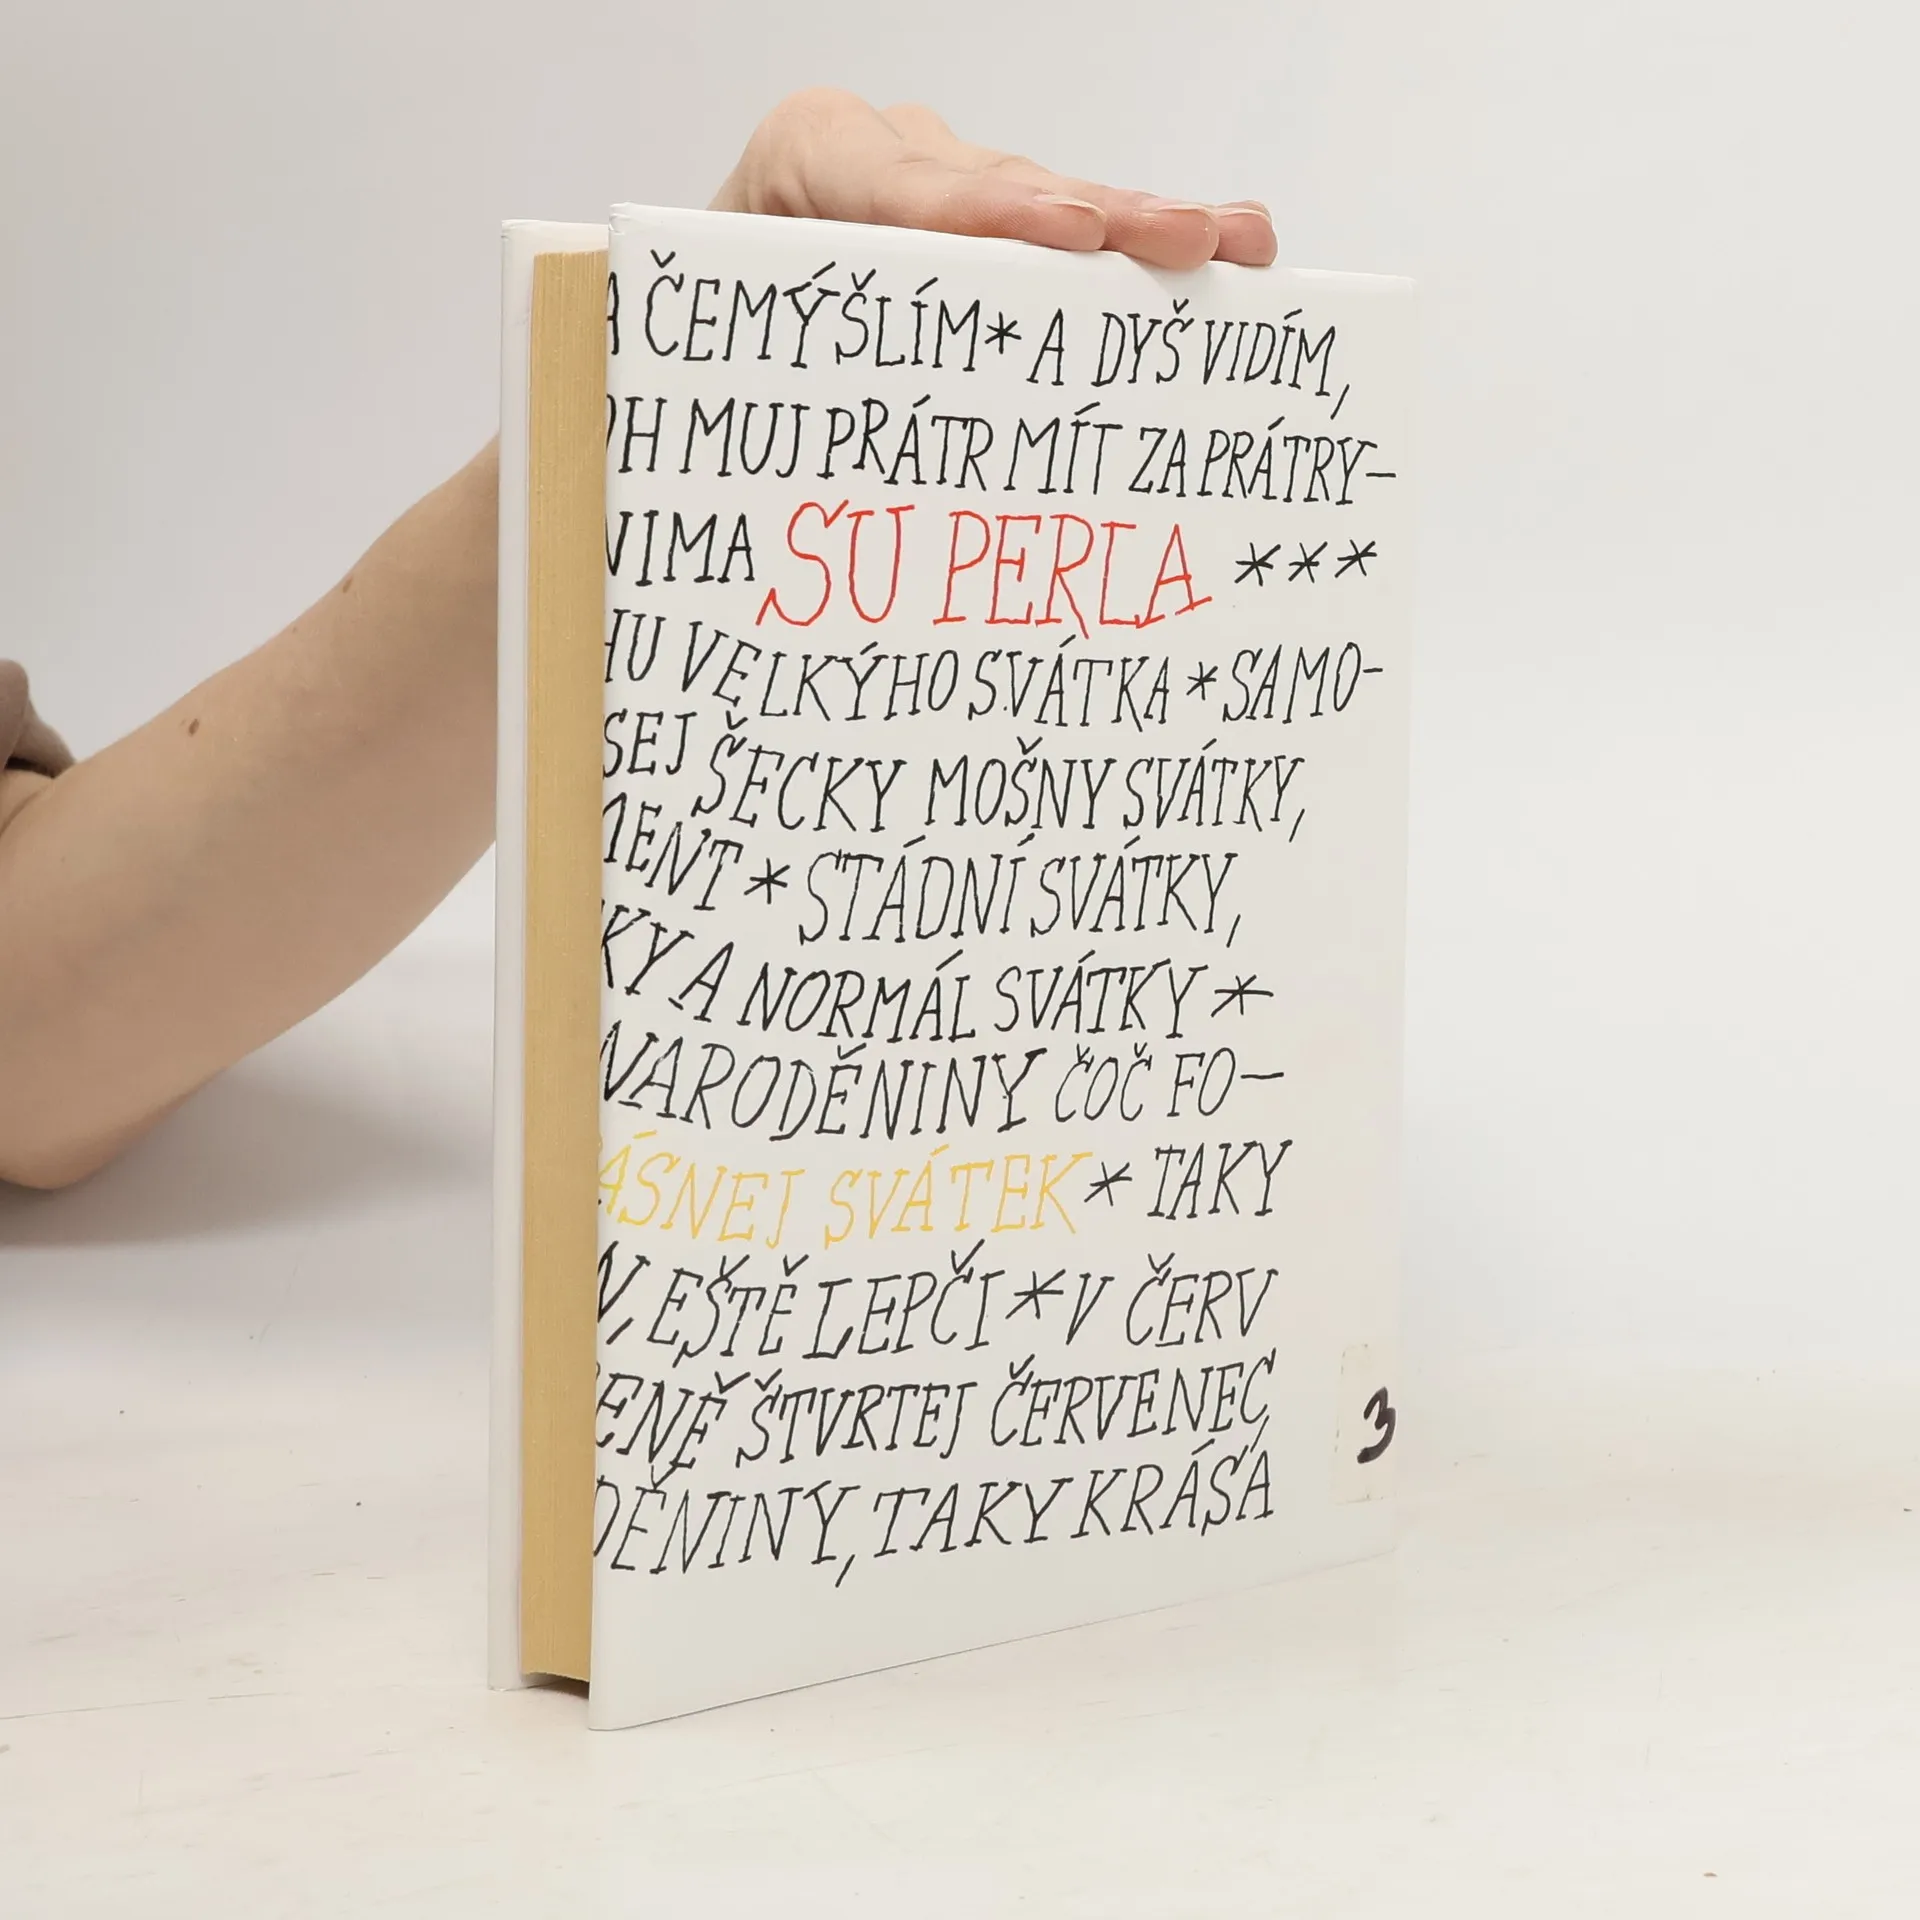 A ČEMÝŠLÍM * A DYŠ VIDÍM,
H MUJ PRÁTR MÍT ZA PRÁTRY-
NIMA SU PERLA ***
HU VELKÝHO SVÁTKA * SAMO-
SEJ ŠECKY MOŠNY SVÁTKY,
MENT * STÁDNÍ SVÁTKY,
KY A NORMÁL SVÁTKY *
NARODĚNINY ČOČ FO-
ÁSNEJ SVÁTEK * TAKY
N, EŠTĚ LEPČI * V ČERV
ENĚ ŠTVRTEJ ČERVENEC,
DĚNINY, TAKY KRÁSA
3